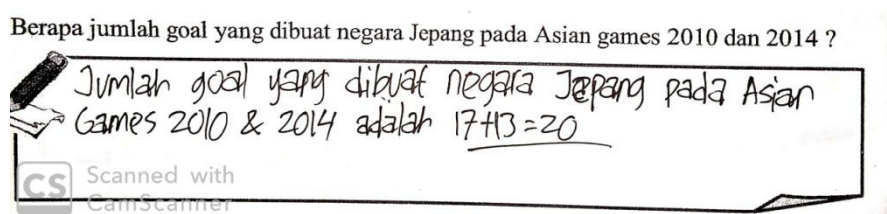 Berapa jumlah goal yang dibuat negara Jepang pada Asian games 2010 dan 2014 ?
Jumlah goal yang dibuat negara Jepang pada Asian
Games 2010 & 2014 adalah 17+13=20
CS Scanned with
CamScanner